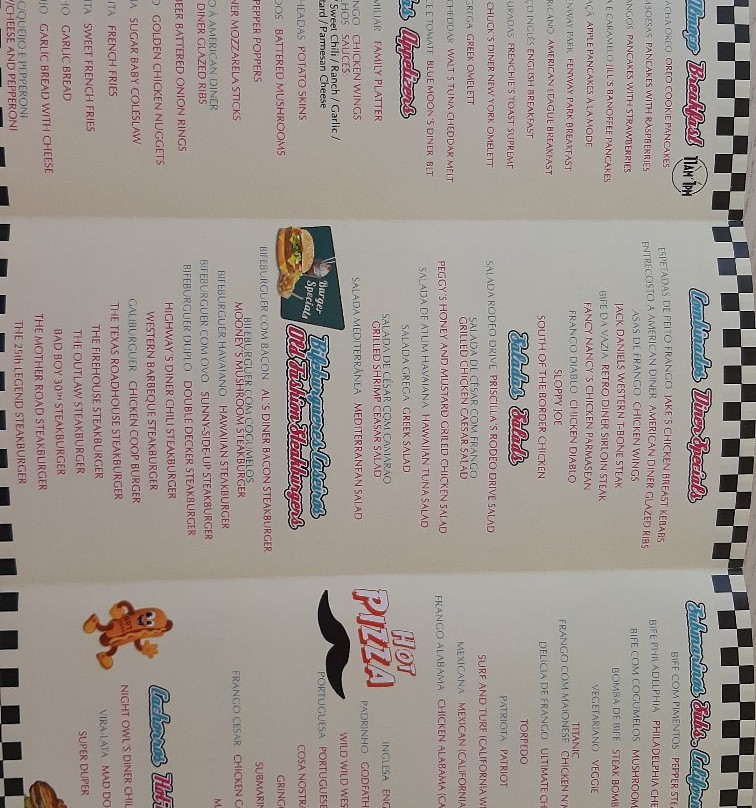 Breakfast
11AM 1PM
OREO COOKIE PANCAKES
PANCAKES WITH RASPBERRIES
PANCAKES WITH STRAWBERRIES
JILL'S BANOFFEE PANCAKES
APPLE PANCAKES À LA MODE
FENWAY PARK FENWAY PARK BREAKFAST
AMERICAN LEAGUE BREAKFAST
ENGLISH BREAKFAST
FRENCHIE'S TOAST SUPREME
CHUCK'S DINER NEW YORK OMELETT
GREGA GREEK OMELETT
CHEDDAR WALT'S TUNA CHEDDAR MELT
E TOMATE BLUE MOON'S DINER BLT
Appetizers
FAMILY PLATTER
CHICKEN WINGS
SAUCES
Sweet Chili / Ranch / Garlic /
Parmesan Cheese
POTATO SKINS
BATTERED MUSHROOMS
PEPPER POPPERS
MOZZARELA STICKS
À AMERICAN DINER
DINER GLAZED RIBS
BEER BATTERED ONION RINGS
GOLDEN CHICKEN NUGGETS
SUGAR BABY COLESLAW
FRENCH FRIES
SWEET FRENCH FRIES
GARLIC BREAD
GARLIC BREAD WITH CHEESE
E PEPPERONI
W/CHEESE AND PEPPERONI
Combinados Diner Specials
ESPETADAS DE PEITO FRANGO JAKE'S CHICKEN BREAST KEBABS
ENTRECOSTO À AMERICAN DINER AMERICAN DINER GLAZED RIBS
ASAS DE FRANGO CHICKEN WINGS
JACK DANIELS WESTERN T-BONE STEAK
BIFE DA VAZIA RETRO DINER SIRLOIN STEAK
FANCY NANCY'S CHICKEN PARMASEAN
FRANCO DIABLO CHICKEN DIABLO
SLOPPY JOE
SOUTH OF THE BORDER CHICKEN
Saladas Salads
SALADA RODEO DRIVE PRISCILA'S RODEO DRIVE SALAD
SALADA DE CÉSAR COM FRANGO
GRILLED CHICKEN CAESAR SALAD
PEGGY'S HONEY AND MUSTARD GRILLED CHICKEN SALAD
SALADA DE ATUM HAVAIANA HAWAIIAN TUNA SALAD
SALADA GREGA GREEK SALAD
SALADA DE CÉSAR COM CAMARÃO
GRILLED SHRIMP CEASAR SALAD
SALADA MEDITERRÂNEA MEDITERRANEAN SALAD
Burger Specials
Bifeburgueres Caseiros
Old Fashion Hamburgers
BIFEBURGUER COM BACON AL'S DINER BACON STEAKBURGER
BIFEBURGUER COM COGUMELOS
MOONEY'S MUSHROOM STEAKBURGER
BIFEBURGUER HAVAIANO HAWAIIAN STEAKBURGER
BIFEBURGUER COM OVO SUNNY-SIDE-UP STEAKBURGER
BIFEBURGUER DUPLO DOUBLE DECKER STEAKBURGER
HIGHWAY'S DINER CHILI STEAKBURGER
WESTERN BARBEQUE STEAKBURGER
GALIBURGUER CHICKEN COOP BURGER
THE TEXAS ROADHOUSE STEAKBURGER
THE FIREHOUSE STEAKBURGER
THE OUTLAW STEAKBURGER
BAD BOY 30TH STEAKBURGER
THE MOTHER ROAD STEAKBURGER
THE 25TH LEGEND STEAKBURGER
Submarinos Subs,
BIFE COM PIMENTOS PEPPER
BIFE PHILADELPHIA PHILADELPHIA
BIFE COM COGUMELOS MUSHROOM
BOMBA DE BIFE STEAK BOMB
VEGETARIANO VEGGIE
TITANIC
FRANGO COM MAIONESE CHICKEN
DELÍCIA DE FRANGO ULTIMATE
TORPEDO
PATRIOTA PATRIOT
SURF AND TURF (CALIFORNIA
MEXICANA MEXICAN (CALIFORNIA
FRANGO ALABAMA CHICKEN ALABAMA
HOT PIZZA
INGLESA
PADRINHO
WILD WILD
PORTUGUESA
COSA NOSTRA
FRANGO CESAR CHICKEN
Cachorros
NIGHT OWL'S DINER
VIRA-LATA MAD
SUPER DUPER